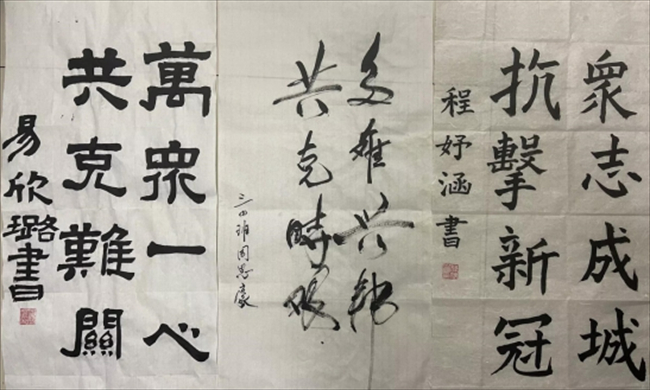 眾志成城
抗擊新冠
程妤涵書
多难兴邦
共克時艰
三四班周思豪
萬眾一心
共克難關
易欣璐書